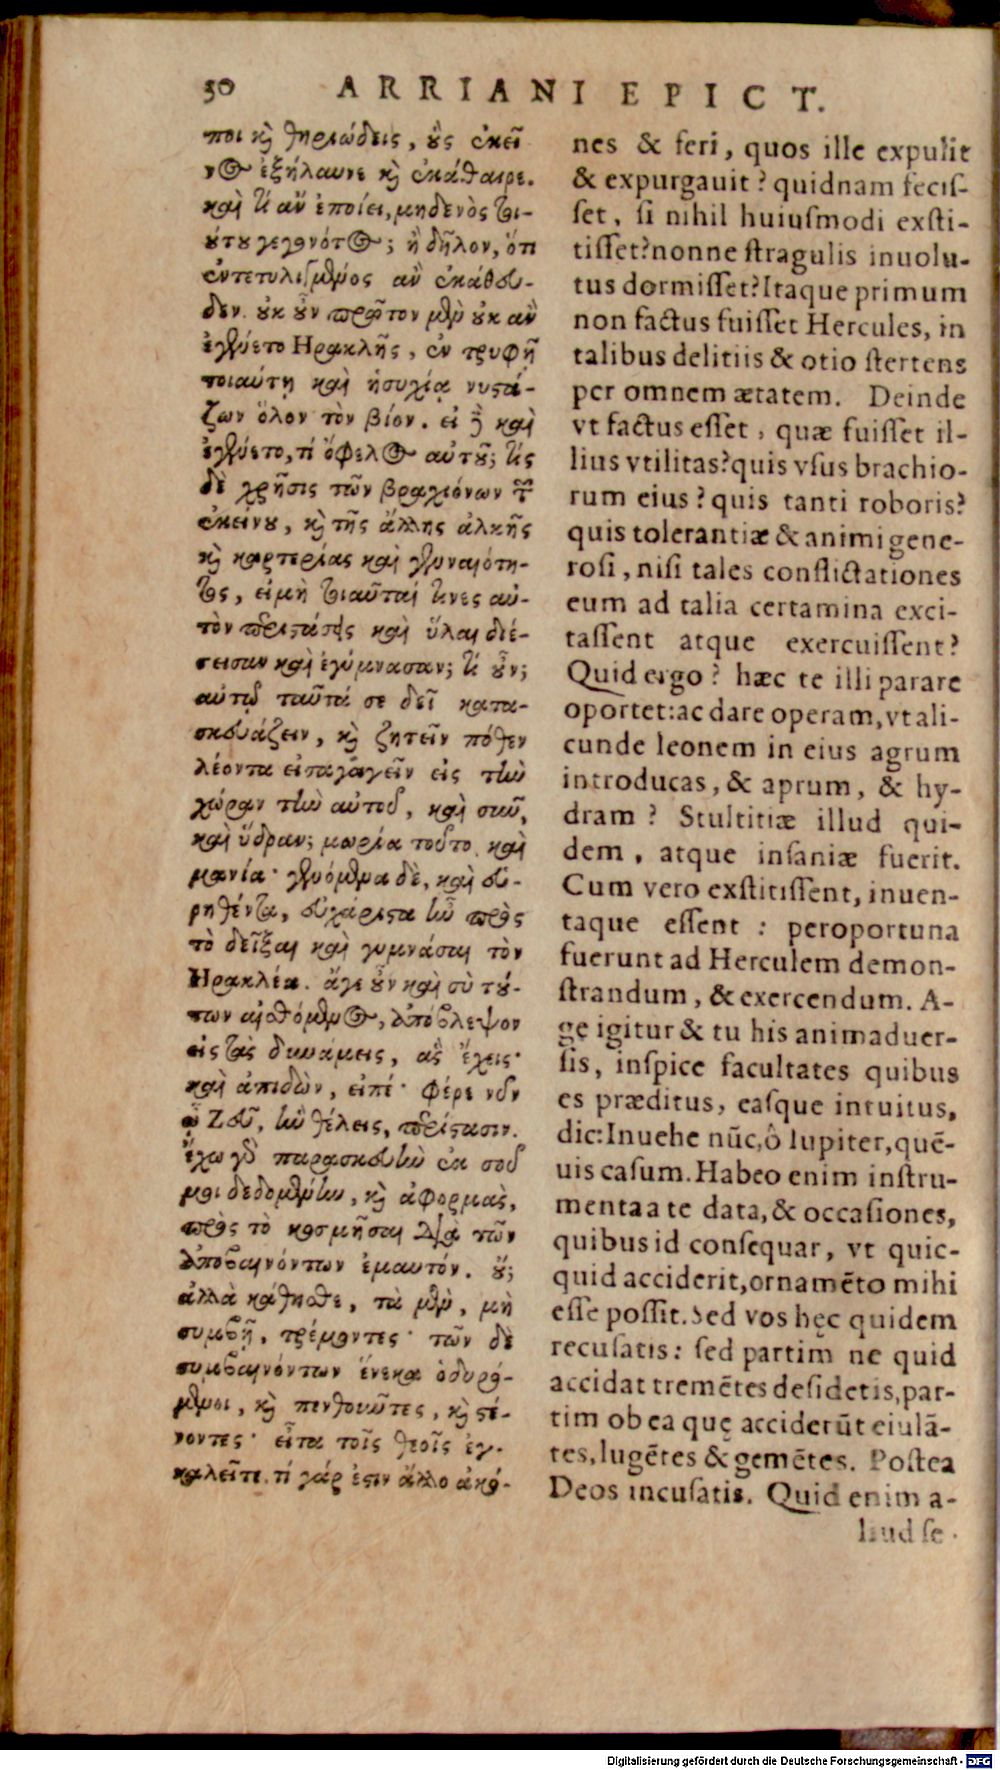 50 ARRIANI EPICT.
ποι κὶ θηριώδεις, οὓς ἐκεῖ
νος ἐξήλαυνε κὶ ἐκάθαιρε.
καὶ τί ἂν ἐποίει, μηδενὸς τοι-
ούτου γεγονότος; ἢ δῆλον, ὅτι
ἐντετυλιγμένος ἂν ἐκάθευ-
δεν. οὐκ οὖν πρῶτον μὲν οὐκ ἂν
ἐγένετο Ηρακλῆς, ἐν τρυφῇ
τοιαύτῃ καὶ ἡσυχίᾳ νυστά-
ζων ὅλον τὸν βίον. εἰ δὲ καὶ
ἐγένετο, τί ὄφελος αὐτοῦ; τίς
δὲ χρῆσις τῶν βραχιόνων τῶν
ἐκείνου, κὶ τῆς ἄλλης ἀλκῆς
κὶ καρτερίας καὶ γενναιότη-
τος, εἰ μὴ τοιαῦταί τινες αὐ-
τὸν περιστάσεις καὶ ὕλαι διέ-
σεισαν καὶ ἐγύμνασαν; τί οὖν;
αὑτῷ ταῦτά σε δεῖ κατα-
σκευάζειν, κὶ ζητεῖν πόθεν
λέοντα εἰσαγάγεῖν εἰς τὴν
χώραν τὴν αὐτοῦ, καὶ σῦν,
καὶ ὕδραν; μωρία τοῦτο καὶ
μανία· γενόμενα δὲ, καὶ εὑ-
ρηθέντα, εὐχάριστα ἦν πρὸς
τὸ δεῖξαι καὶ γυμνάσαι τὸν
Ηρακλέα. ἄγε οὖν καὶ σὺ τού-
των αἰσθόμενος, ἀπόβλεψον
εἰς τὰς δυνάμεις, ἃς ἔχεις·
καὶ ἀπιδὼν, εἰπέ· φέρε νῦν
ὦ Ζεῦ, ἣν θέλεις, περίστασιν.
ἔχω γὰρ παρασκευὴν ἐκ σοῦ
μοι δεδομένην, κὶ ἀφορμὰς,
πρὸς τὸ κοσμῆσαι διὰ τῶν
ἀποβαινόντων ἐμαυτόν. οὔ;
ἀλλὰ κάθησθε, τὰ μὲν, μὴ
συμβῇ, τρέμοντες· τῶν δὲ
συμβαινόντων ἕνεκα ὀδυρό-
μενοι, κὶ πενθοῦντες, κὶ στέ-
νοντες· εἶτα τοῖς θεοῖς ἐγ-
καλεῖτε. τί γάρ ἐστιν ἄλλο ἀκό-
nes & feri, quos ille expulit
& expurgauit? quidnam fecis-
set, si nihil huiusmodi exsti-
tisset? nonne stragulis inuolu-
tus dormisset? Itaque primum
non factus fuisset Hercules, in
talibus delitiis & otio stertens
per omnem ætatem. Deinde
vt factus esset, quæ fuisset il-
lius vtilitas? quis vsus brachio-
rum eius? quis tanti roboris?
quis tolerantiæ & animi gene-
rosi, nisi tales conflictationes
eum ad talia certamina exci-
tassent atque exercuissent?
Quid ergo? hæc te illi parare
oportet: ac dare operam, vt ali-
cunde leonem in eius agrum
introducas, & aprum, & hy-
dram? Stultitiæ illud qui-
dem, atque insaniæ fuerit.
Cum vero exstitissent, inuen-
taque essent: peroportuna
fuerunt ad Herculem demon-
strandum, & exercendum. A-
ge igitur & tu his animaduer-
sis, inspice facultates quibus
es præditus, easque intuitus,
dic: Inuehe nũc, ô Iupiter, quẽ-
uis casum. Habeo enim instru-
menta a te data, & occasiones,
quibus id consequar, vt quic-
quid acciderit, ornamẽto mihi
esse possit. Sed vos hęc quidem
recusatis: sed partim ne quid
accidat tremẽtes desidetis, par-
tim ob ea quę acciderũt eiulã-
tes, lugẽtes & gemẽtes. Postea
Deos incusatis. Quid enim a-
liud se-
Digitalisierung gefördert durch die Deutsche Forschungsgemeinschaft - DFG